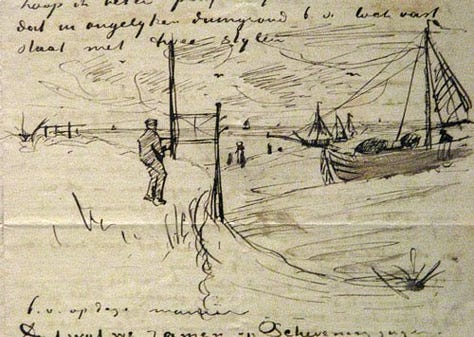 hoop ik beter
dat in ongelyken duingrond b.v. toch vast
staat met twee stylen
b.v. op deze manier
Dat wat we zamen op Schevening zagen